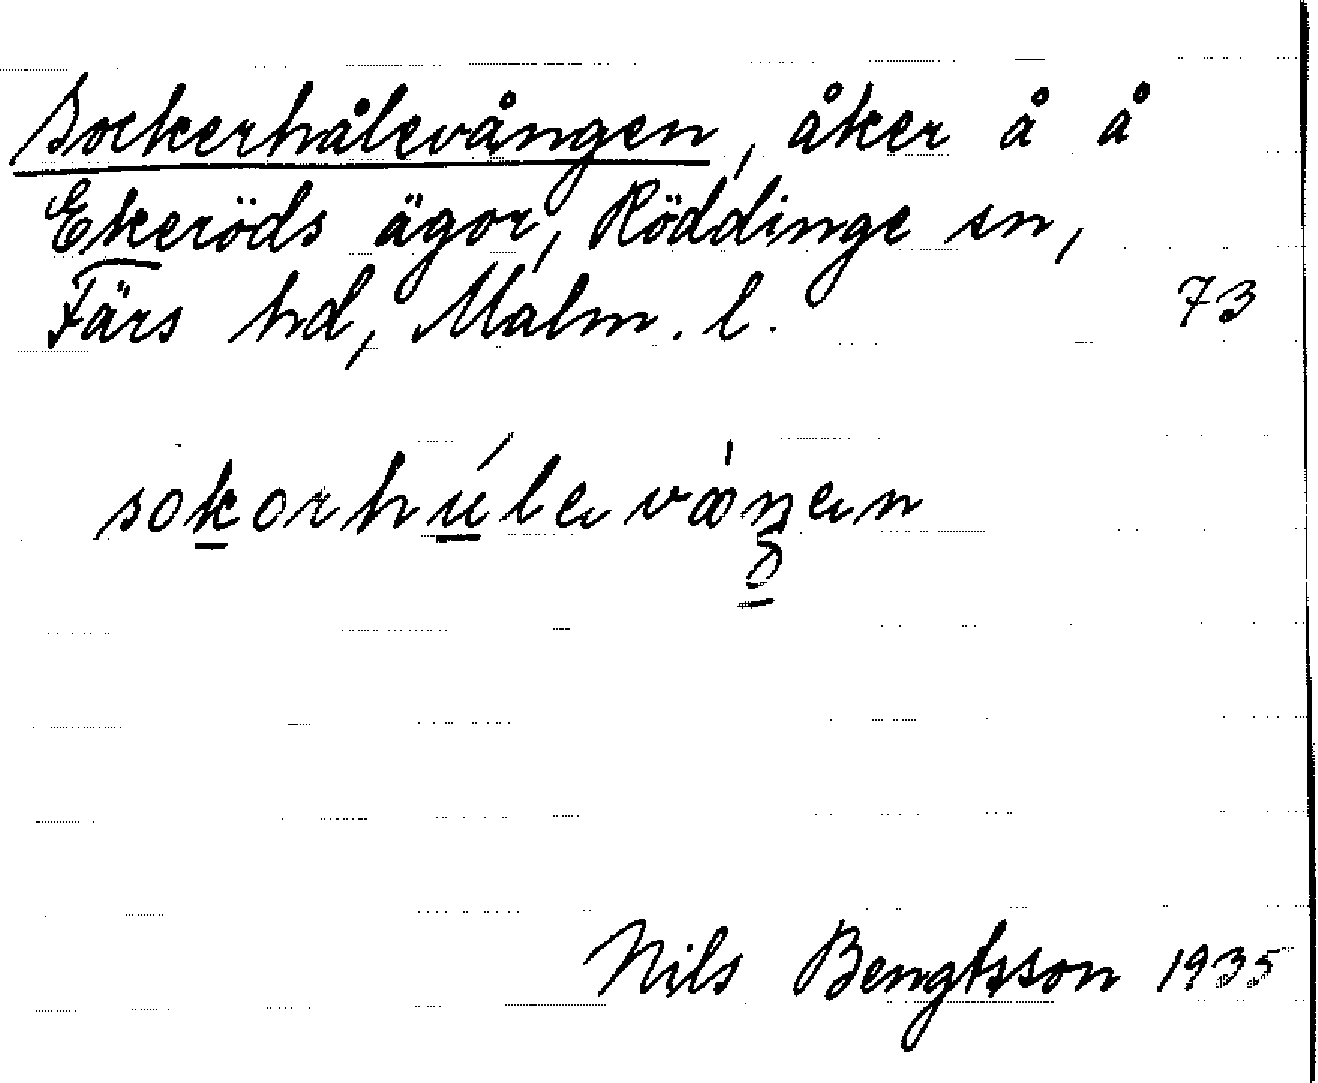 Sockerhålevången, åker å å
Ekeröds ägor, Röddinge sn,
Färs hd, Malm. l. 73
Nils Bengtsson 1935